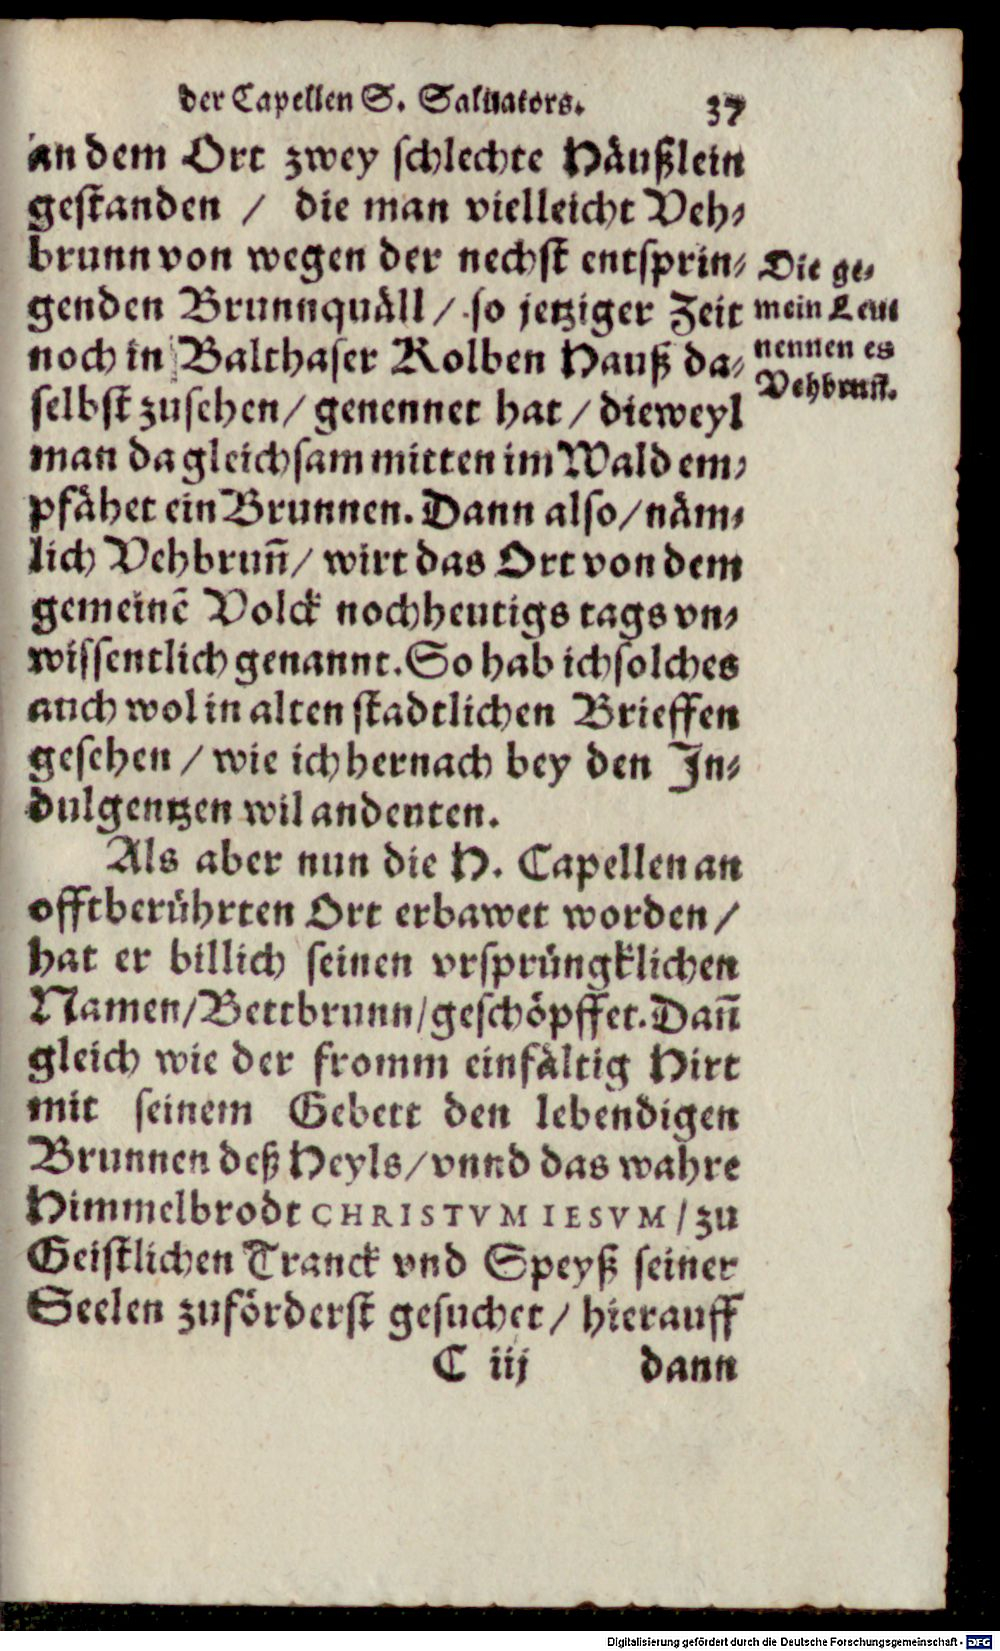 der Capellen S. Saluators. 37
an dem Ort zwey schlechte Häußlein
gestanden / die man vielleicht Veh-
brunn von wegen der nechst entsprin-
genden Brunnquäll / so jetziger Zeit
noch in Balthaser Kolben Hauß da-
selbst zusehen / genennet hat / dieweyl
man da gleichsam mitten im Wald em-
pfähet ein Brunnen. Dann also / näm-
lich Vehbrun̄ / wirt das Ort von dem
gemeinē Volck noch heutigs tags vn-
wissentlich genannt. So hab ich solches
auch wol in alten stadtlichen Brieffen
gesehen / wie ich hernach bey den In-
dulgentzen wil andeuten.
Als aber nun die H. Capellen an
offtberührten Ort erbawet worden /
hat er billich seinen vrsprüngklichen
Namen / Bettbrunn / geschöpffet. Dan̄
gleich wie der fromm einfältig Hirt
mit seinem Gebett den lebendigen
Brunnen deß Heyls / vnnd das wahre
Himmelbrodt CHRISTVM IESVM / zu
Geistlichen Tranck vnd Speyß seiner
Seelen zuförderst gesuchet / hierauff
C iij dann
Die ge-
mein Leut
nennen es
Vehbrun̄.
Digitalisierung gefördert durch die Deutsche Forschungsgemeinschaft - DFG